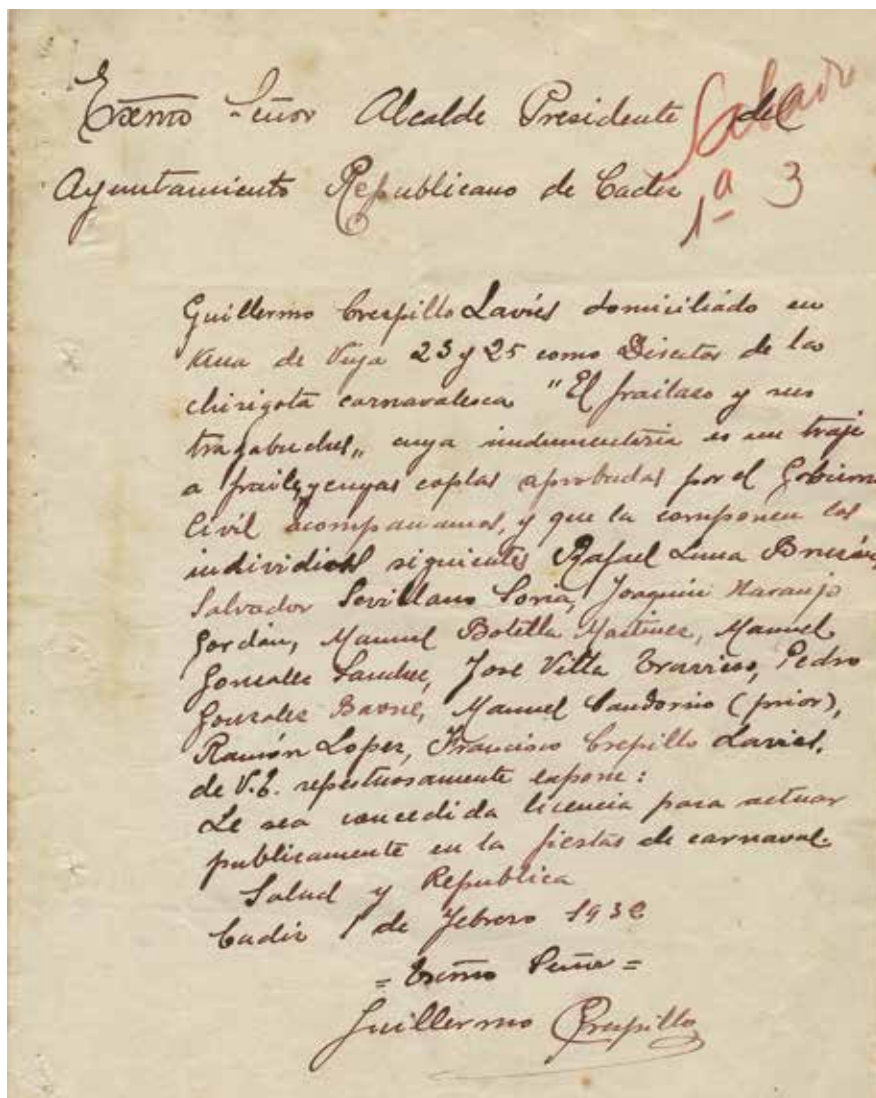 Excmo Señor Alcalde Presidente del
Ayuntamiento Republicano de Cadiz
Sabado
1ª 3
Guillermo Crespillo Laviés domiciliado en
de Viya 23 y 25 como Director de la
chirigota carnavalesca "El frailazo y sus
tragabuches„ cuya indumentaria es un traje
a fraile, y cuyas coplas aprobadas por el Gobierno
Civil acompañamos, y que la componen los
individuos siguientes Rafael Luna
Salvador Sevillano Soria, Joaquin Naranjo
Jordán, Manuel Botella Martinez, Manuel
Gonzalez Sanchez, Jose Villa Pedro
Gonzalez Manuel (prior),
Ramón Lopez, Francisco Crepillo Laviés,
de V.E. repetuosamente expone:
Le sea concedida licencia para actuar
publicamente en la fiestas de carnaval.
Salud y Republica
Cadiz 1 de Febrero 1932
= Excmo Señor =
Guillermo Crespillo